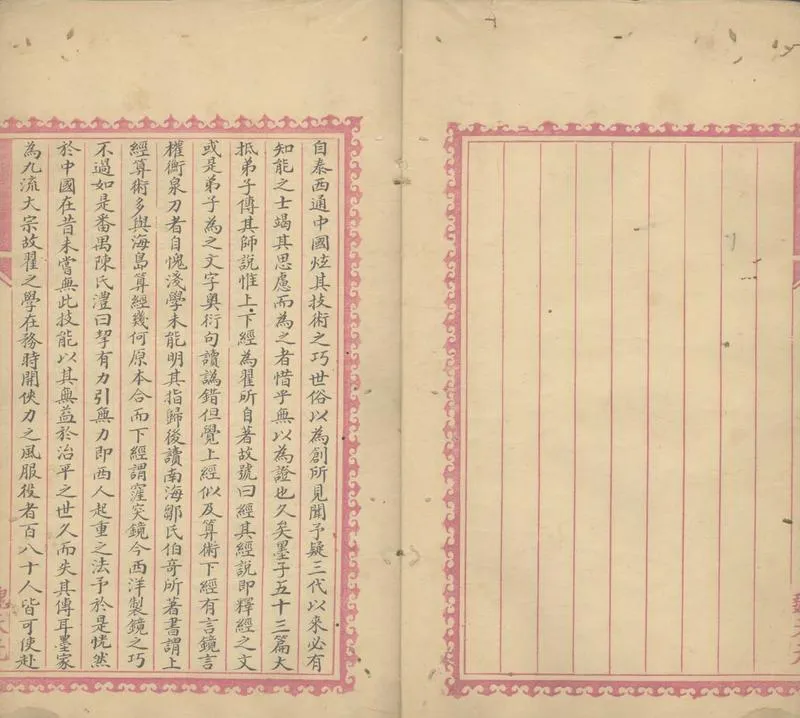 自泰西通中國炫其技術之巧世俗以為創所見聞予疑三代以來必有
知能之士竭其思慮而為之者惜乎無以為證也久矣墨子五十三篇大
抵弟子傳其師說惟上下經為翟所自著故號曰經其經說即釋經之文
或是弟子為之文字奧衍句讀譌錯但覺上經似及算術下經有言鏡言
權衡泉刀者自愧淺學未能明其指歸後讀南海鄒氏伯奇所著書謂上
經算術多與海島算經幾何原本合而下經謂窪突鏡今西洋製鏡之巧
不過如是番禺陳氏澧曰挈有力引無力即西人起重之法予於是恍然
於中國在昔未嘗無此技能以其無益於治平之世久而失其傳耳墨家
為九流大宗故翟之學在務時開俠力之風服役者百八十人皆可使赴